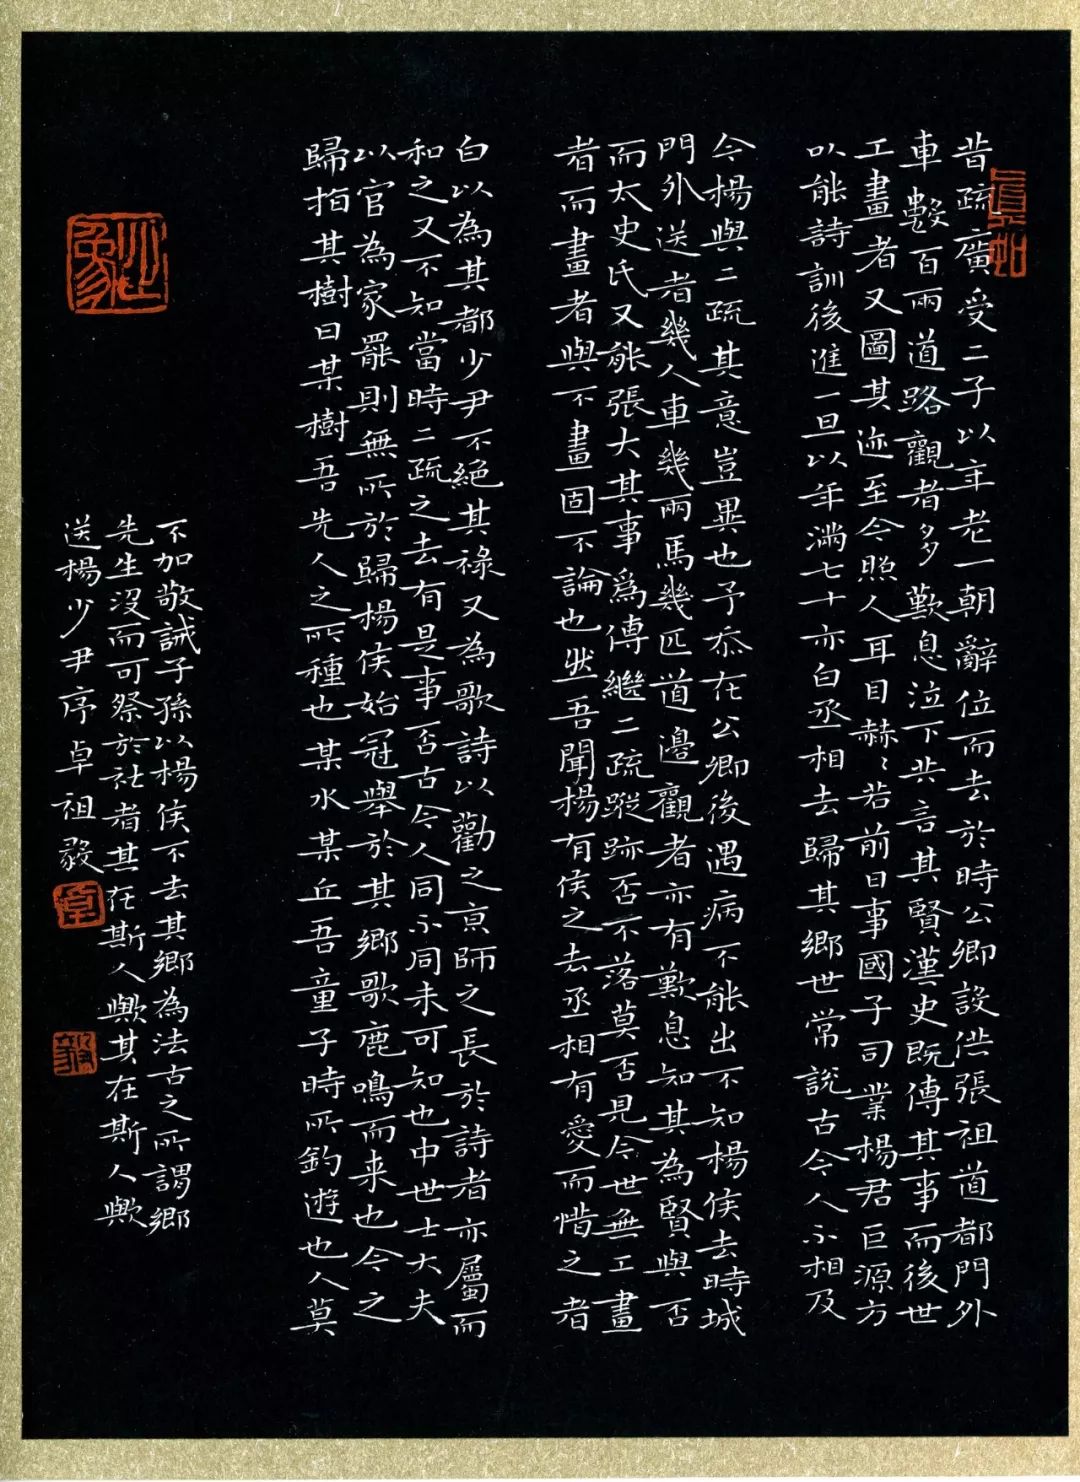 昔疏廣受二子以年老一朝辭位而去於時公卿設供張祖道都門外
車數百兩道路觀者多歎息泣下共言其賢漢史既傳其事而後世
工畫者又圖其迹至今照人耳目赫〻若前日事國子司業楊君巨源方
以能詩訓後進一旦以年滿七十亦白丞相去歸其鄉世常說古今人不相及
今楊與二疏其意豈異也予忝在公卿後遇病不能出不知楊侯去時城
門外送者幾人車幾兩馬幾匹道邊觀者亦有歎息知其為賢與否
而太史氏又能張大其事為傳繼二疏蹤跡否不落莫否見今世無工畫
者而畫者與不畫固不論也然吾聞楊有侯之去丞相有愛而惜之者
白以為其都少尹不絕其祿又為歌詩以勸之京師之長於詩者亦屬而
和之又不知當時二疏之去有是事否古今人同不同未可知也中世士大夫
以官為家罷則無所於歸楊侯始冠舉於其鄉歌鹿鳴而来也今之
歸指其樹曰某樹吾先人之所種也某水某丘吾童子時所釣遊也人莫
不加敬誡子孫以楊侯不去其鄉為法古之所謂鄉
先生沒而可祭於社者其在斯人歟其在斯人歟
送楊少尹序卓祖毅
卓
毅